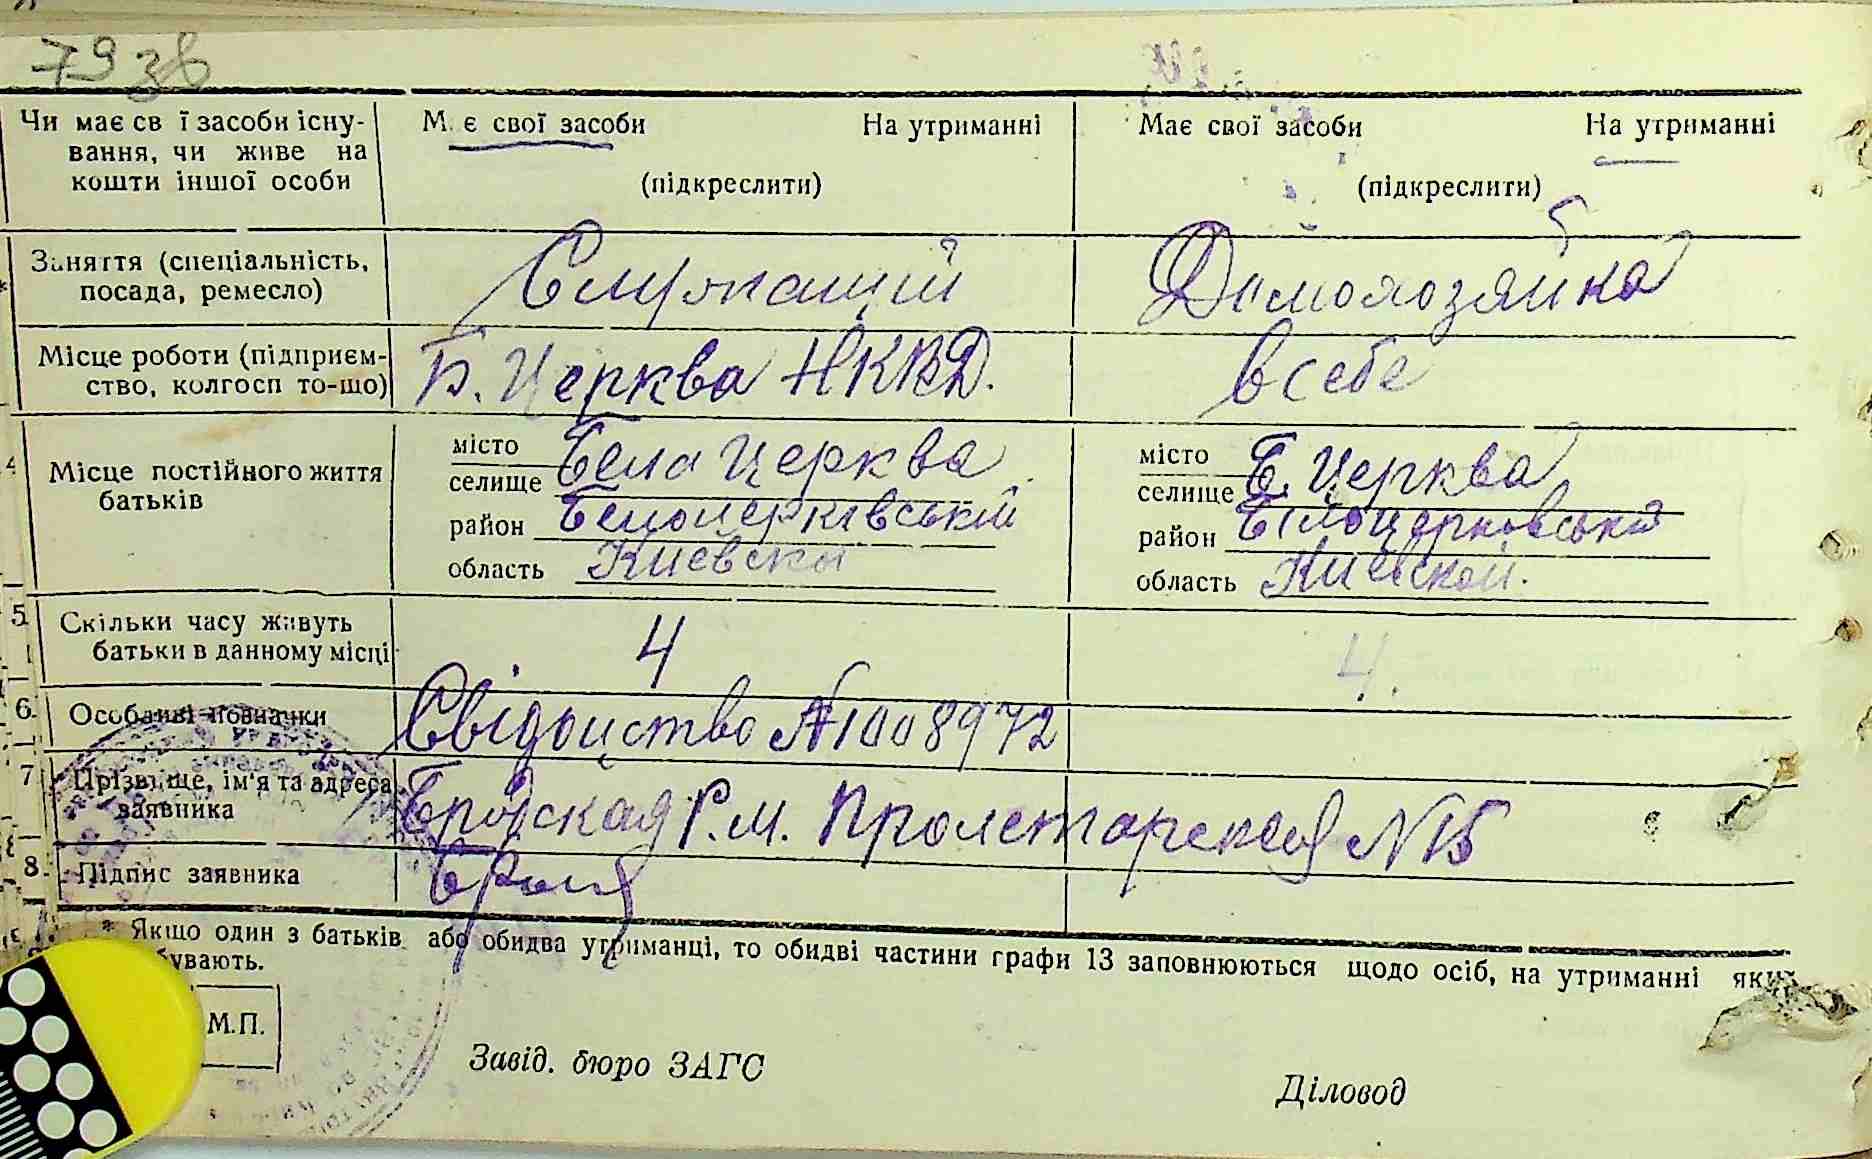 79 зв
Чи має св ї засоби існу-
вання, чи живе на
кошти іншої особи
М є свої засоби На утриманні
(підкреслити)
Має свої засоби На утриманні
(підкреслити)
Заняття (спеціальність,
посада, ремесло)
Служащий
Домохозяйка
Місце роботи (підприєм-
ство, колгосп то-що)
Б. Церква НКВД.
в себе
4 Місце постійного життя
батьків
місто Бела Церква
селище
район Белоцерківський
область Киевска
місто Б. Церква
селище
район Білоцерковський
область Киевской.
5 Скільки часу живуть
батьки в данному місці
4
4.
6. Особливі позначки
Свідоцтво №1008972
7 Прізвище, ім'я та адреса
заявника
Р.М. Пролетарская №15
8. Підпис заявника
* Якщо один з батьків або обидва утриманці, то обидві частини графи 13 заповнюються щодо осіб, на утриманні яких
бувають.
М.П.
Завід. бюро ЗАГС
Діловод